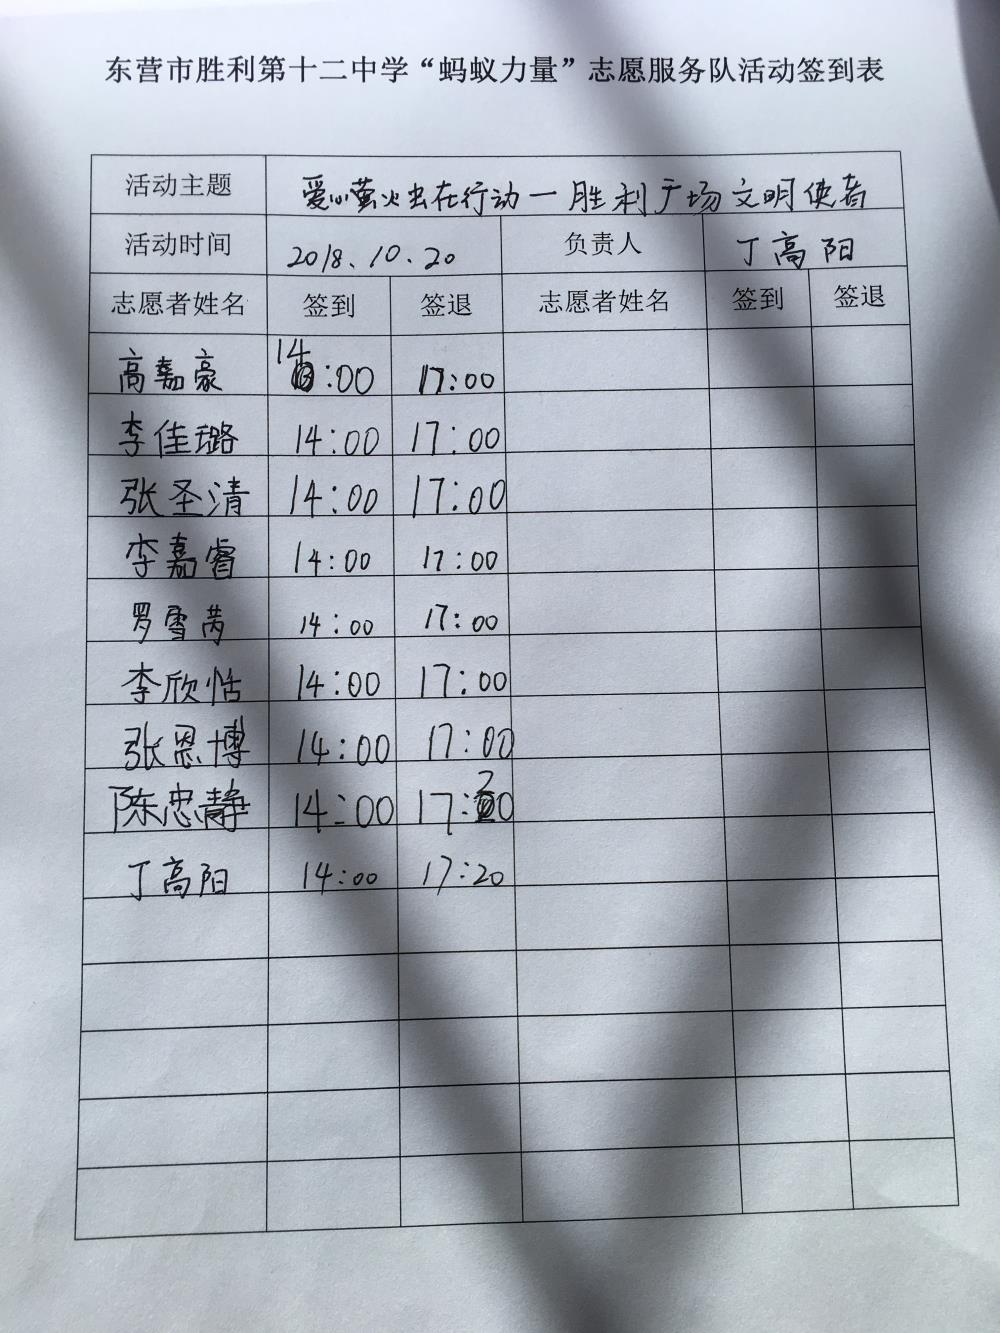 东营市胜利第十二中学“蚂蚁力量”志愿服务队活动签到表
活动主题 爱心萤火虫在行动一胜利广场文明使者
活动时间 2018.10.20 负责人 丁高阳
志愿者姓名 签到 签退 志愿者姓名 签到 签退
高嘉豪 14:00 17:00
李佳璐 14:00 17:00
张圣清 14:00 17:00
李嘉睿 14:00 17:00
罗雪芮 14:00 17:00
李欣恬 14:00 17:00
张恩博 14:00 17:00
陈忠静 14:00 17:20
丁高阳 14:00 17:20